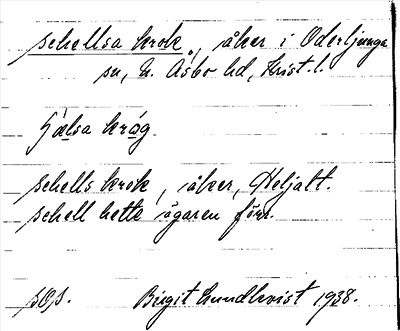 schellsa krok, åker i Oderljunga
sn, N. Åsbo hd, Krist. l.
sjælsa kråg
schells krok, åker, Heljalt.
schell hette ägaren förr.
Birgit Lundkvist 1938.